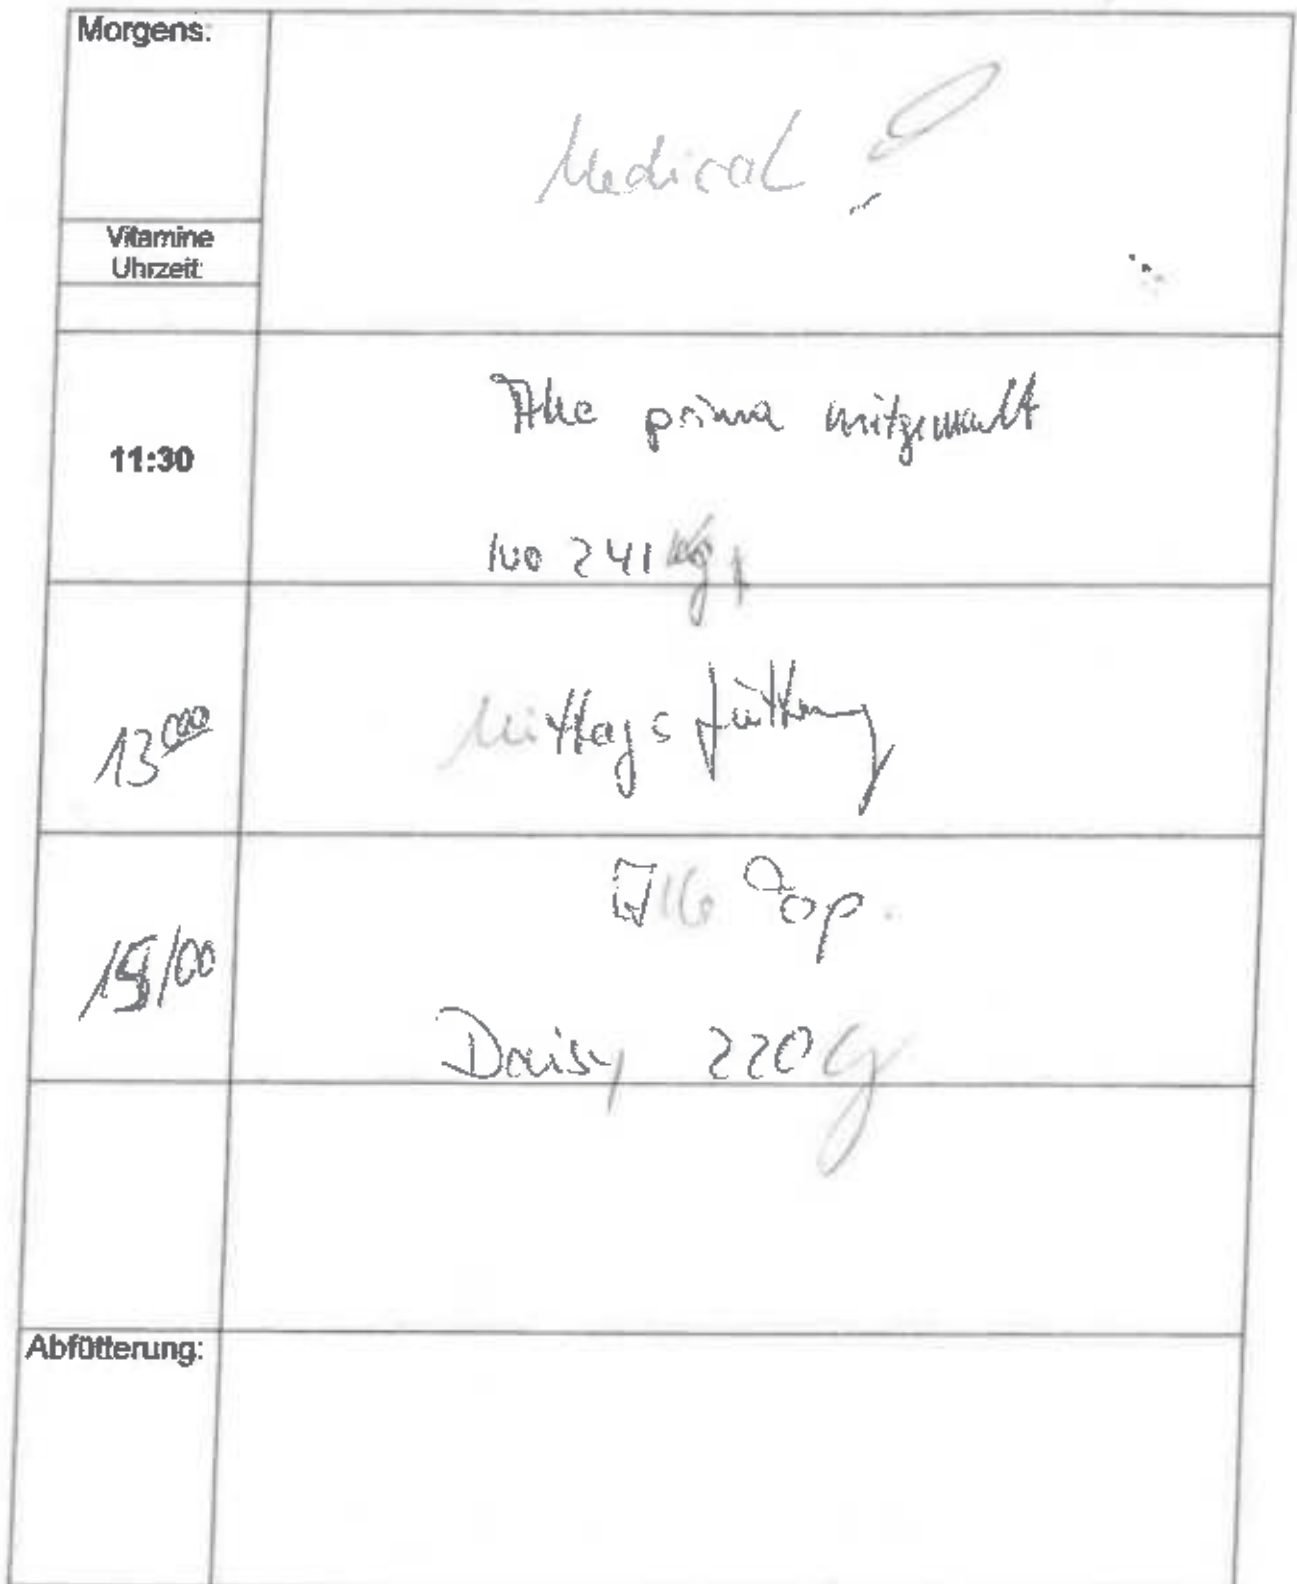 Morgens:
Medical !
Vitamine
Uhrzeit:
11:30
Alle prima mitgemacht
Ivo 241 kg
13 000
Mittagsfütterung
15/00
Alle Top.
Daisy 220 G
Abfütterung: